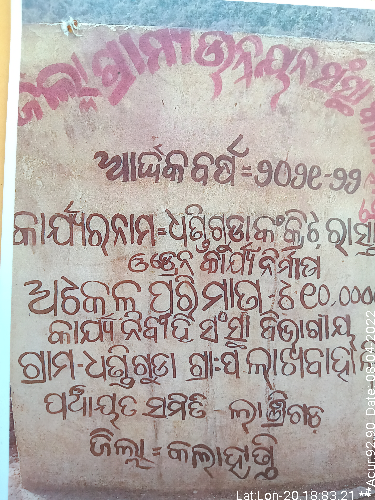 ଜିଲ୍ଲା ଗ୍ରାମୀଣ ଉନ୍ନୟନ ସଂସ୍ଥା
ଆର୍ଥିକ ବର୍ଷ = ୨୦୨୧-୨୨
କାର୍ଯ୍ୟର ନାମ = ଧଣ୍ଡିଗୁଡା କଂକ୍ରିଟ୍ ରାସ୍ତା
ଓ ଡ୍ରେନ କାର୍ଯ୍ୟ ନିର୍ମାଣ
ଅଟକଳ ପରିମାଣ - ₹ ୧୦.୦୦୦୦
କାର୍ଯ୍ୟ ନିର୍ବାହି ସଂସ୍ଥା ବିଭାଗୀୟ
ଗ୍ରାମ - ଧଣ୍ଡିଗୁଡା ଗ୍ରା:ପ ଲାଖବାହାଲି
ପଞ୍ଚାୟତ ସମିତି - ଲାଞ୍ଜିଗଡ଼
ଜିଲ୍ଲା = କଳାହାଣ୍ଡି
Lat:Lon-20.18:83.21 **Acur.92.90 Date-08-04-2022